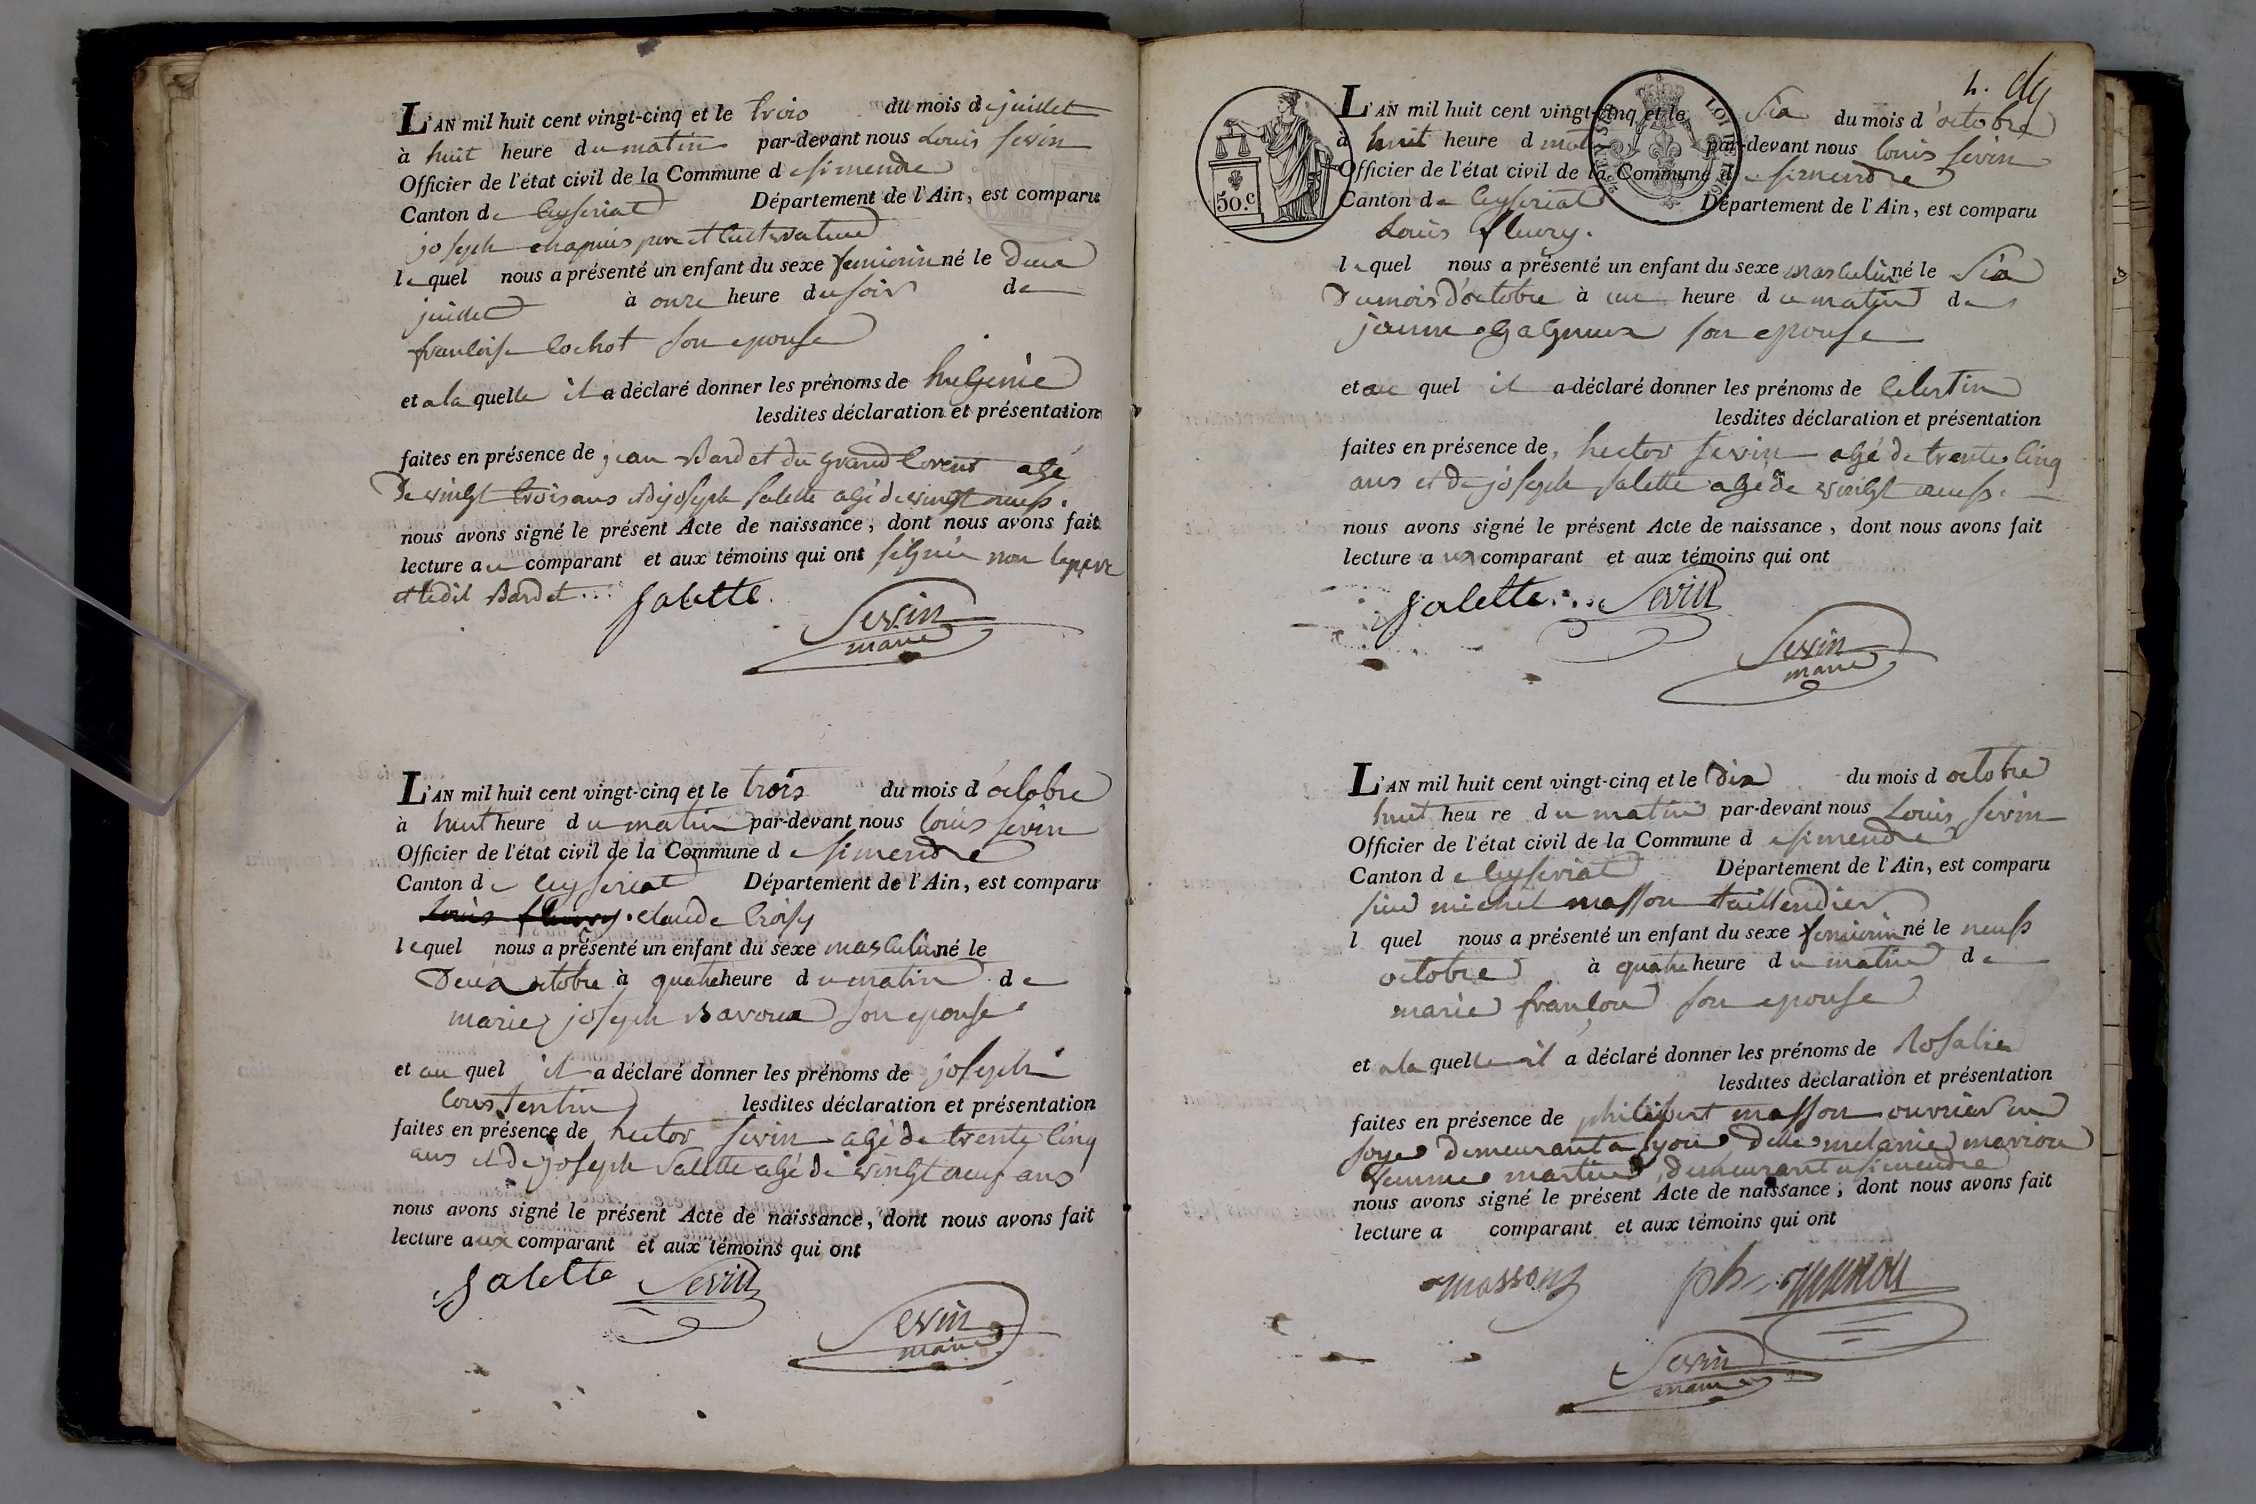 L'AN mil huit cent vingt-cinq et le trois du mois de juillet
à huit heure du matin par-devant nous Louis sevin
Officier de l'état civil de la Commune de simendre
Canton de Ceyseriat Département de l'Ain, est comparu
joseph chapuis pere et Cultivateur
lequel nous a présenté un enfant du sexe feminin né le Deux
juillet à onze heure du soir de
francoise Cochot son epouse
et a la quelle il a déclaré donner les prénoms de hugenie
lesdites déclaration et présentation
faites en présence de jean Bardet du grand Corent agé
De vingt trois ans et de joseph salette agé de vingt neuf.
nous avons signé le présent Acte de naissance, dont nous avons fait
lecture au comparant et aux témoins qui ont signé non le pere
et ledit Bardet...
Salette
Sevin
maire
L'AN mil huit cent vingt-cinq et le trois du mois d'octobre
à huit heure du matin par-devant nous louis sevin
Officier de l'état civil de la Commune de simendre
Canton de Ceyseriat Département de l'Ain, est comparu
louis fleury. claude Croisy
lequel nous a présenté un enfant du sexe masculin né le
Deux octobre à quatre heure du matin de
marie joseph Bavoux son epouse
et au quel il a déclaré donner les prénoms de joseph
Constentin lesdites déclaration et présentation
faites en présence de hector sevin agé de trente cinq
ans et de joseph Salette agé de vingt neuf ans
nous avons signé le présent Acte de naissance, dont nous avons fait
lecture aux comparant et aux témoins qui ont
Salette Sevin
Sevin
maire
4.
50.c
L'AN mil huit cent vingt-cinq et le Six du mois d'octobre
à huit heure d mat par-devant nous louis sevin
Officier de l'état civil de la Commune de simendre
Canton de Ceyseriat Département de l'Ain, est comparu
Louis fleury.
lequel nous a présenté un enfant du sexe masculin né le Six
Du mois d'octobre à une heure du matin de
jeanne gagneux son epouse
et au quel il a déclaré donner les prénoms de Celestin
lesdites déclaration et présentation
faites en présence de, hector sevin agé de trente cinq
ans et de joseph salette agé de vingt neuf.
nous avons signé le présent Acte de naissance, dont nous avons fait
lecture aux comparant et aux témoins qui ont
Salette... Sevin
Sevin
maire
L'AN mil huit cent vingt-cinq et le Dix du mois d octobre
huit heure du matin par-devant nous Louis sevin
Officier de l'état civil de la Commune de simendre
Canton de Ceyseriat Département de l'Ain, est comparu
sieur michel masson taillendier
l quel nous a présenté un enfant du sexe feminin né le neuf
octobre à quatre heure du matin de
marie francon son epouse
et a la quelle il a déclaré donner les prénoms de Rosalie
lesdites déclaration et présentation
faites en présence de philibert masson ouvrier en
soye demeurant a lyon Delle melanie marion
femme martin, demeurant a simendre
nous avons signé le présent Acte de naissance, dont nous avons fait
lecture a comparant et aux témoins qui ont
masson ph
Sevin
maire